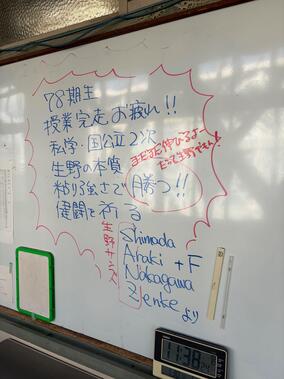 78期生
授業完走お疲れ!!
私学・国公立2次
生野の本質
粘り強さで勝つ!!
健闘を祈る
まだまだ伸びるよー
だって生野だもん!
生野サンズ
Shimada
Araki + F
Nakagawa
Zenke より
11:38